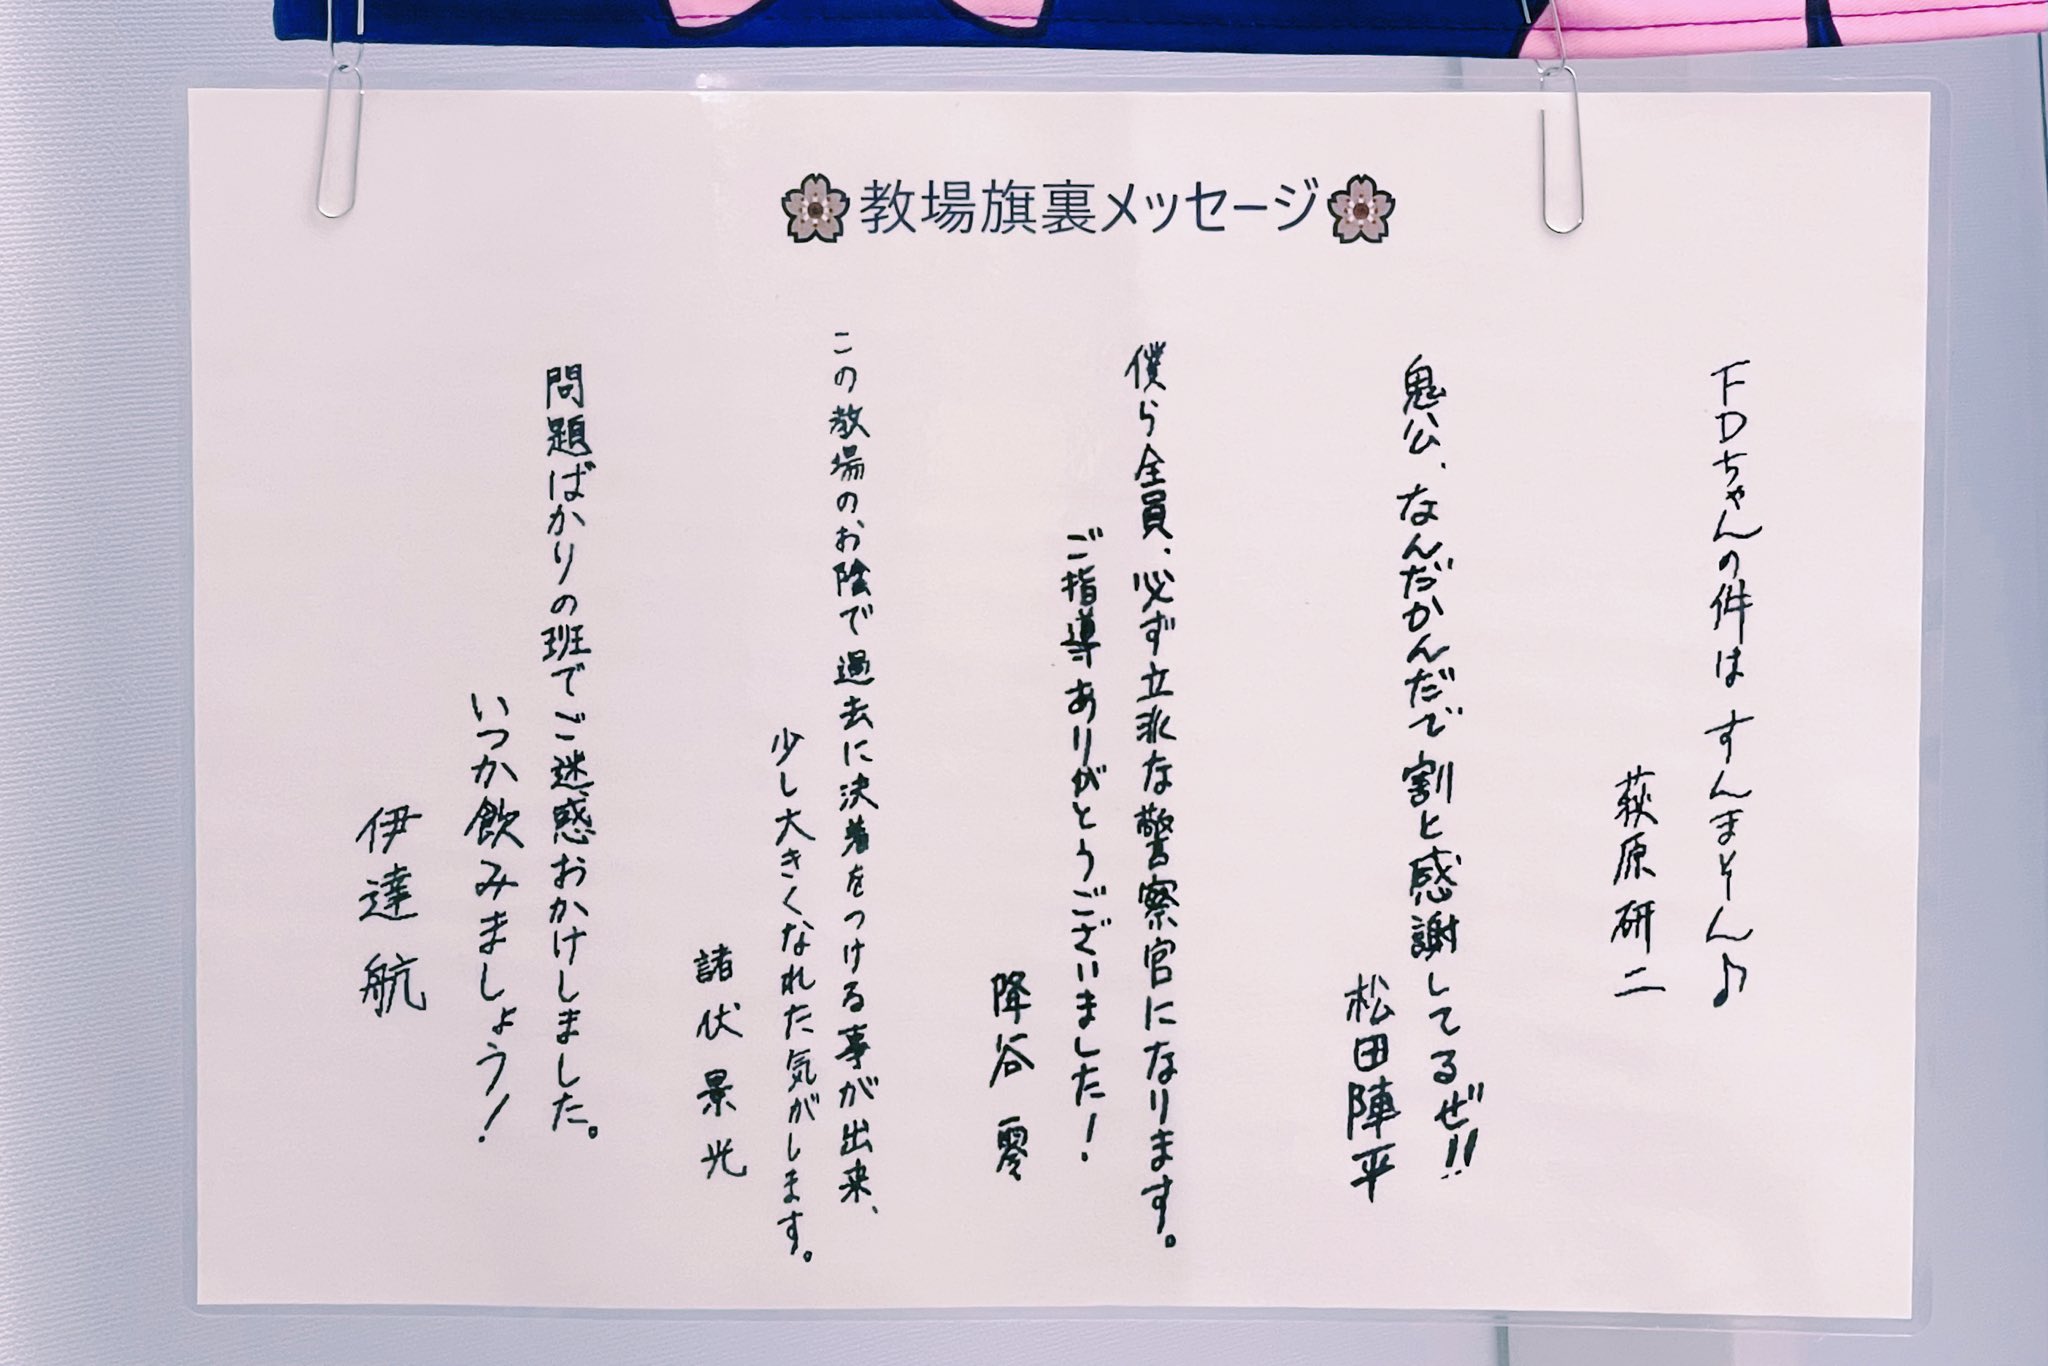 🌸教場旗裏メッセージ🌸
FDちゃんの件は すんまそん♪
萩原研二
鬼公、なんだかんだで割と感謝してるぜ!!
松田陣平
僕ら全員、必ず立派な警察官になります。
ご指導ありがとうございました!
降谷 零
この教場のお陰で過去に決着をつける事が出来、
少し大きくなれた気がします。
諸伏景光
問題ばかりの班でご迷惑おかけしました。
いつか飲みましょう!
伊達航